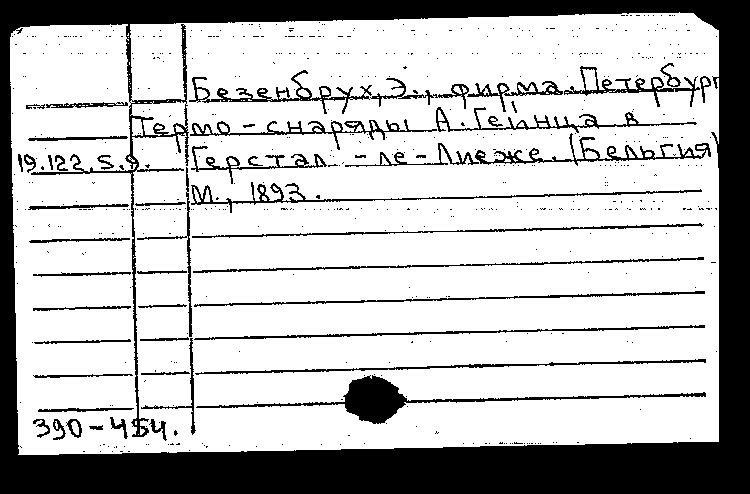 Безенбрух, Э., фирма. Петербург
Термо-снаряды А. Гейнца в
19.122.5.9. Герстал-ле-Лиеже. (Бельгия)
М., 1893.
390-454.